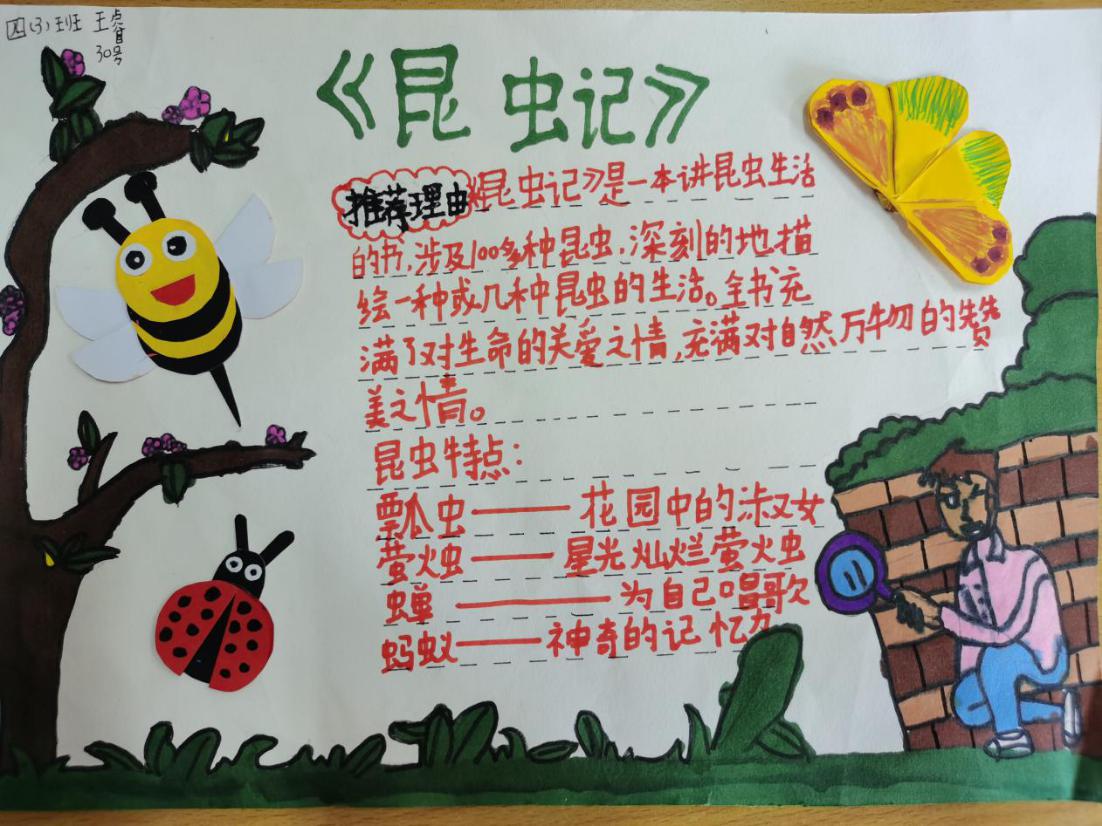 四（3）班 王睿
30号
《昆虫记》
推荐理由《昆虫记》是一本讲昆虫生活
的书，涉及100多种昆虫．深刻的地描
绘一种或几种昆虫的生活。全书充
满了对生命的关爱之情，充满对自然万物的赞
美之情。
昆虫特点：
瓢虫——花园中的淑女
萤火虫——星光灿烂萤火虫
蝉——为自己唱歌
蚂蚁——神奇的记忆力